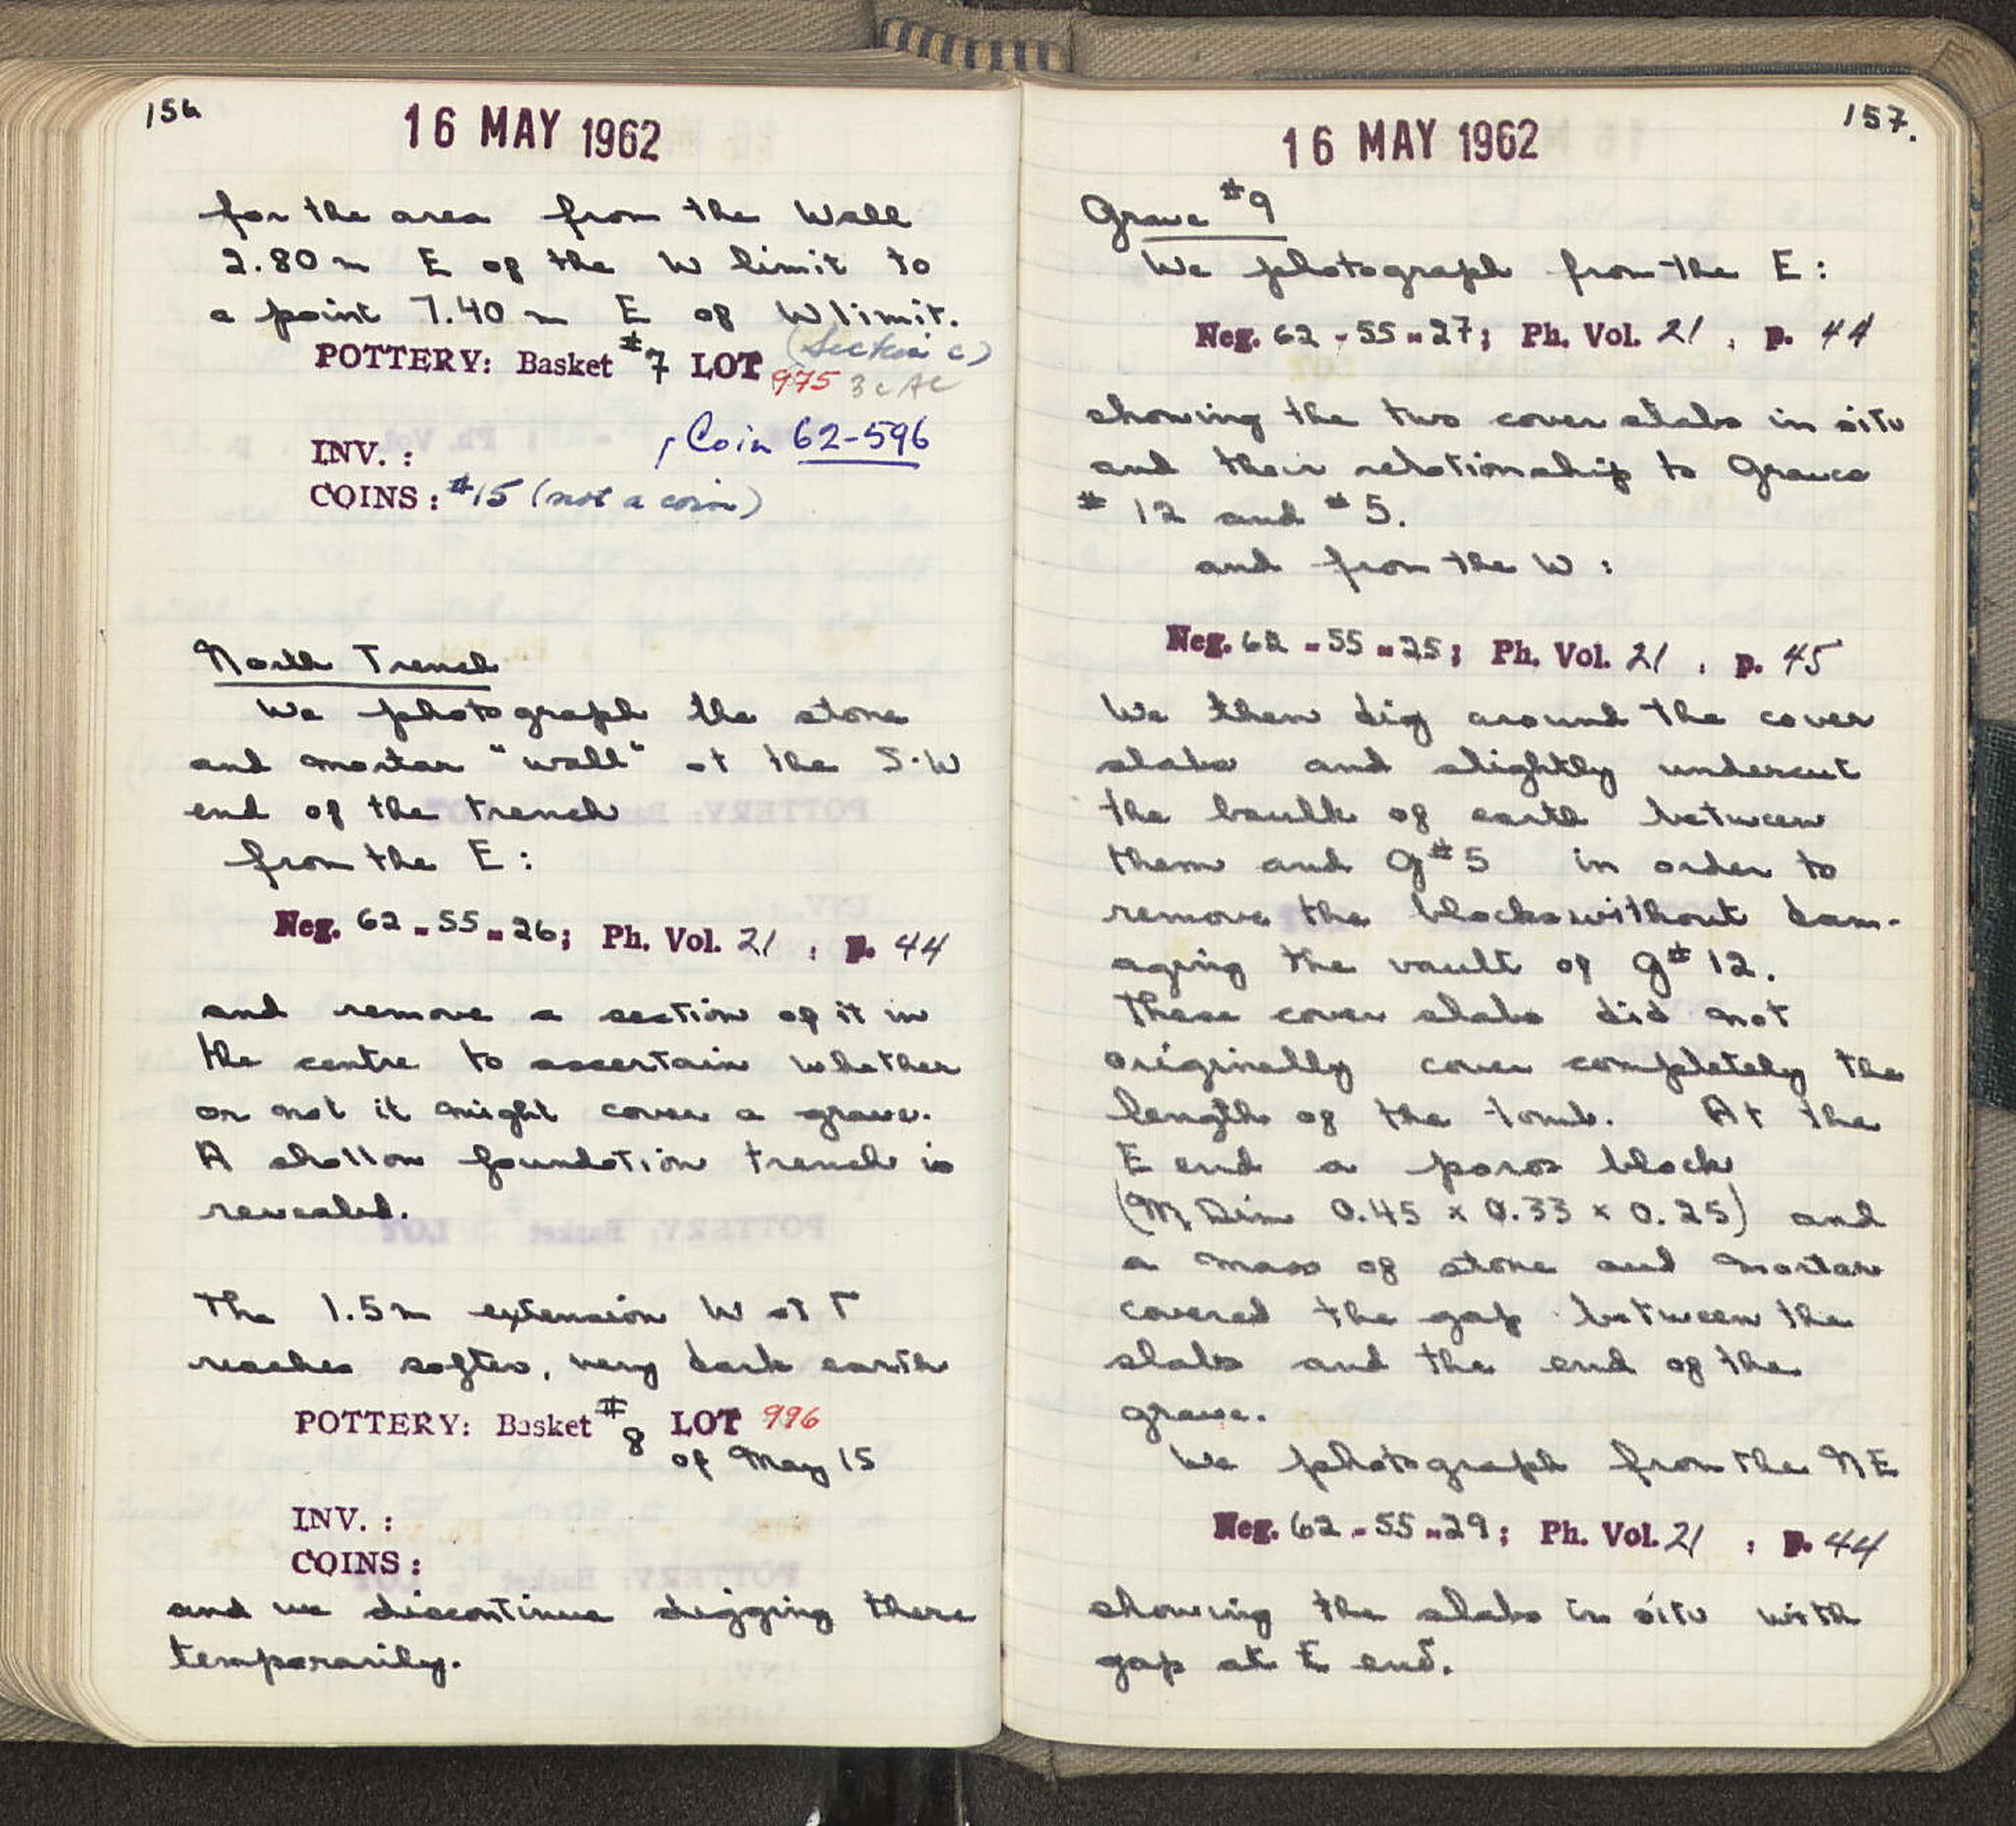 156
16 MAY 1962
for the area from the Wall
2.80 m E of the W limit to
a point 7.40 m E of W limit.
(Section C)
POTTERY: Basket #7 LOT 975 3 c AC
, Coin 62-596
INV. :
COINS: #15 (not a coin)
North Trench
We photograph the stone
and mortar "wall" at the S.W
end of the trench
from the E:
Neg. 62-55-26; Ph. Vol. 21, p. 44
and remove a section of it in
the centre to ascertain whether
or not it might cover a grave.
A shallow foundation trench is
revealed.
The 1.5 m extension W of T
reaches softer, very dark earth
POTTERY: Basket #8 LOT 996
of May 15
INV. :
COINS:
and we discontinue digging there
temporarily.
157.
16 MAY 1962
Grave #9
We photograph from the E:
Neg. 62-55-27; Ph. Vol. 21, p. 44
showing the two cover slabs in situ
and their relationship to Graves
#12 and #5.
and from the W:
Neg. 62-55-25; Ph. Vol. 21, p. 45
We then dig around the cover
slabs and slightly undercut
the baulk of earth between
them and G#5 in order to
remove the blocks without dam-
aging the vault of G#12.
These cover slabs did not
originally cover completely the
length of the tomb. At the
E end a poros block
(M. Dim 0.45 x 0.33 x 0.25) and
a mass of stone and mortar
covered the gap between the
slabs and the end of the
grave.
We photograph from the NE
Neg. 62-55-29; Ph. Vol. 21, p. 44
showing the slabs in situ with
gap at E end.